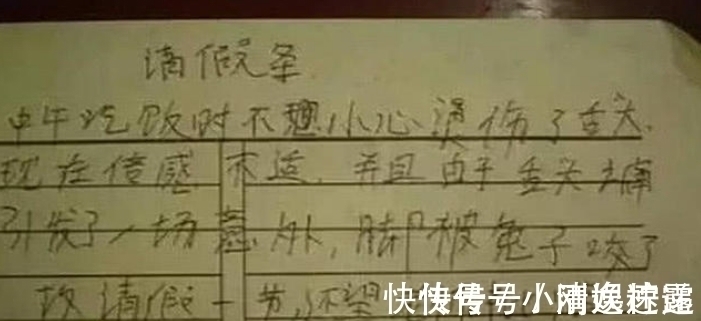 请假条
中午吃饭时不小心烫伤了舌头.
现在倍感不适.并且由于舌头太痛
引发了一场意外,脚被兔子咬了
故请假一节,不望
快传号/